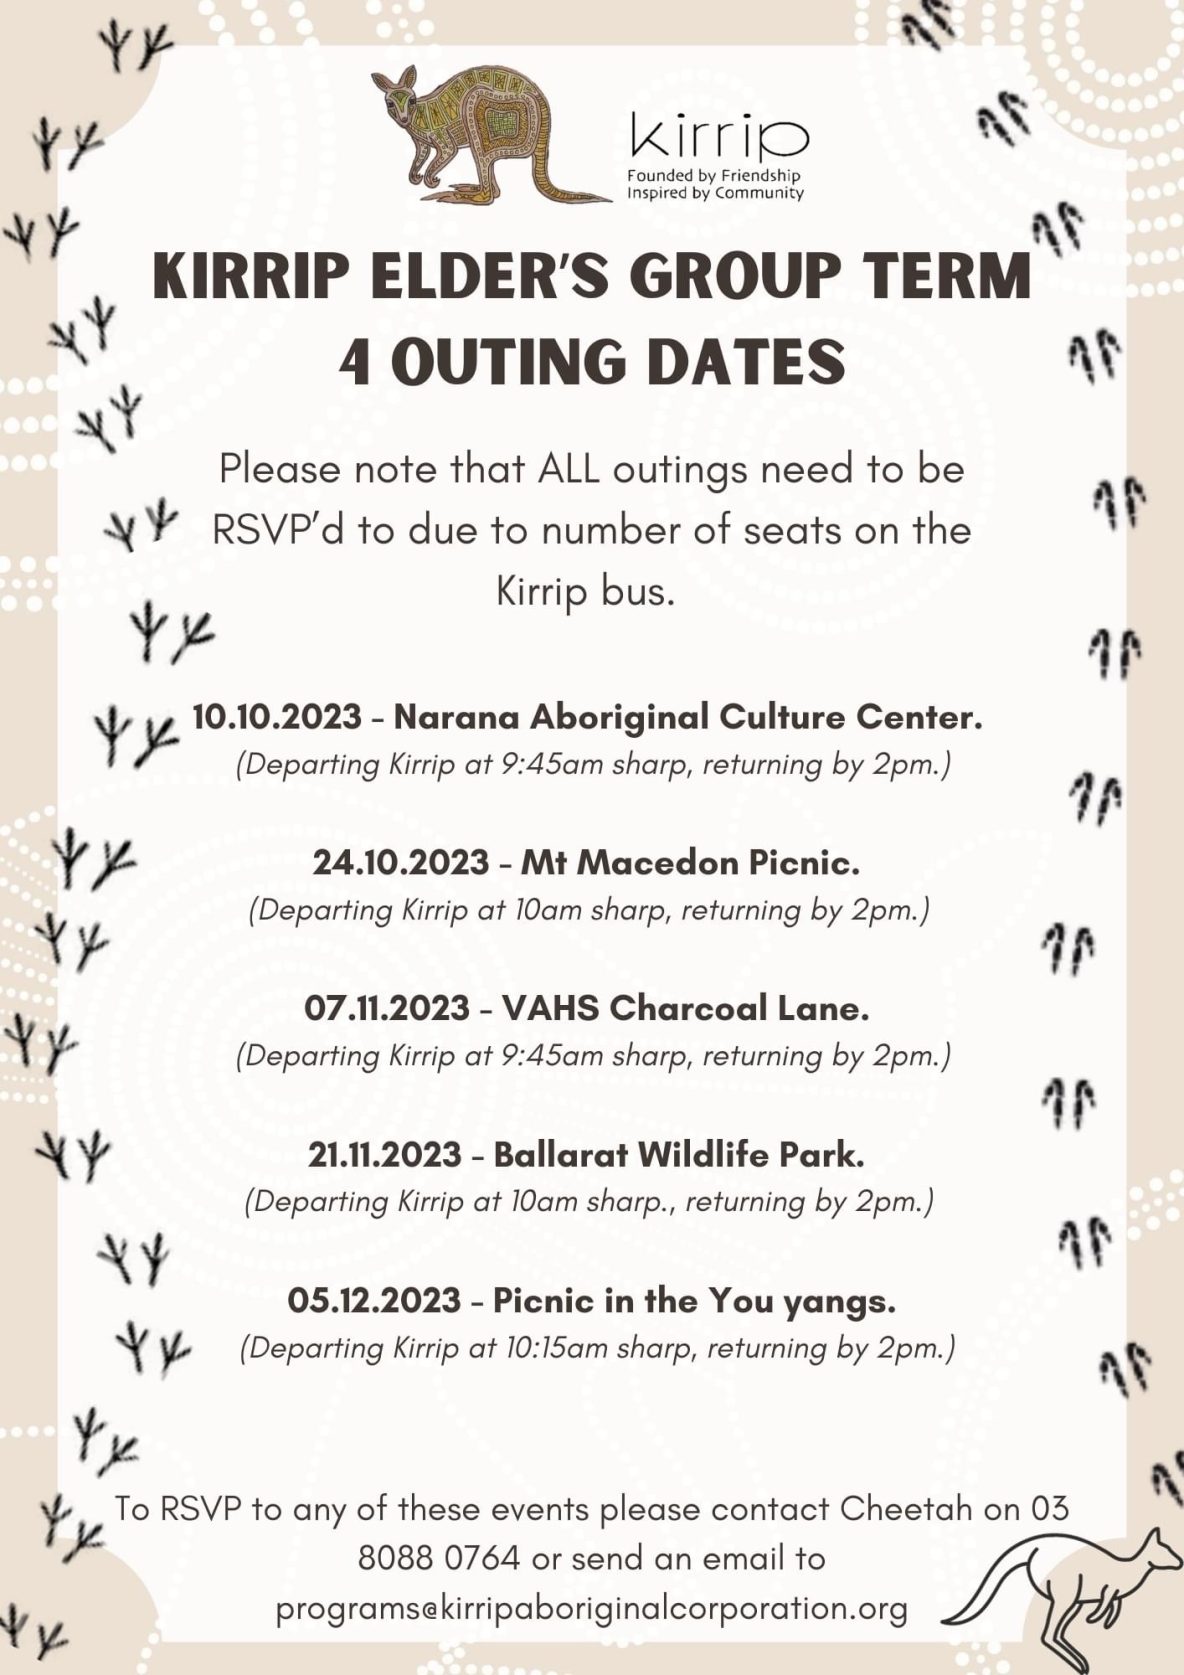 kirrip
Founded by Friendship
Inspired by Community
KIRRIP ELDER'S GROUP TERM
4 OUTING DATES
Please note that ALL outings need to be
RSVP'd to due to number of seats on the
Kirrip bus.
10.10.2023 - Narana Aboriginal Culture Center.
(Departing Kirrip at 9:45am sharp, returning by 2pm.)
24.10.2023 - Mt Macedon Picnic.
(Departing Kirrip at 10am sharp, returning by 2pm.)
07.11.2023 - VAHS Charcoal Lane.
(Departing Kirrip at 9:45am sharp, returning by 2pm.)
21.11.2023 - Ballarat Wildlife Park.
(Departing Kirrip at 10am sharp., returning by 2pm.)
05.12.2023 - Picnic in the You yangs.
(Departing Kirrip at 10:15am sharp, returning by 2pm.)
To RSVP to any of these events please contact Cheetah on 03
8088 0764 or send an email to
programs@kirripaboriginalcorporation.org